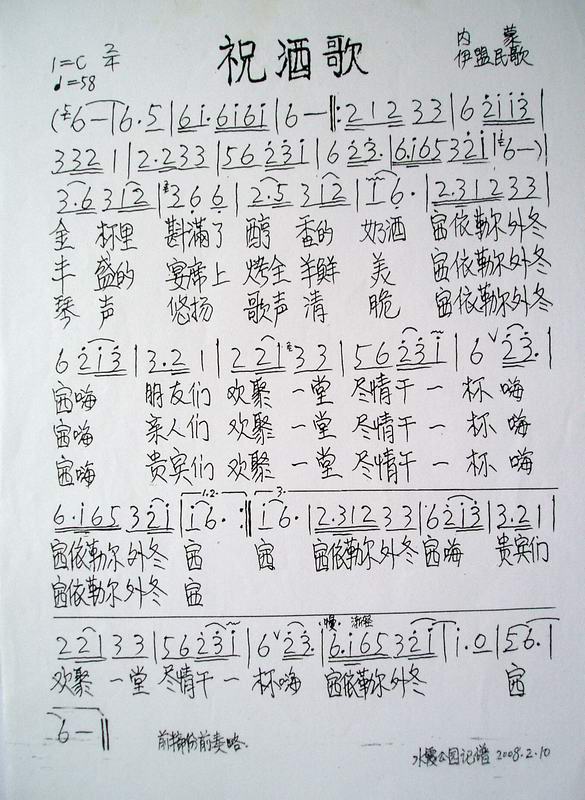 祝酒歌
1=C 2/4
♩=58
内 蒙
伊盟民歌
(6—|6.5|6i.6i6i|6—‖:2123 3|62ii3|
3321|2.233|56 2 3 i|6 2 3.|6.i65 32i|6—)|
3.6 312|3 6 6|2.5 312|i 6.|2.312 33|
金 杯里 斟满了 醇 香的 奶酒 宻依勒尔外冬
丰 盛的 宴席上 烤全 羊鲜 美 宻依勒尔外冬
琴 声 悠扬 歌声 清 脆 宻依勒尔外冬
6 2i3|3.2 1|2 2i 33|56 23i|6 ∨23.|
宻嗨 朋友们 欢聚 一堂 尽情干一 杯 嗨
宻嗨 亲人们 欢聚 一堂 尽情干一 杯 嗨
宻嗨 贵宾们 欢聚 一堂 尽情干一 杯 嗨
1.2. 3.
6.i65 32i|i6.:‖i6.|2.312 33|62i3|3.21|
宻依勒尔外冬 宻 宻 宻依勒尔外冬 宻嗨 贵宾们
宻依勒尔外冬 宻
慢. 渐轻
22i 33|56 23i|6∨23.|6.i65 32i|i.0|56.|
欢聚 一堂 尽情干一 杯嗨 宻依勒尔外冬 宻
6—‖
前奏略.
水霞公园记谱 2008.2.10